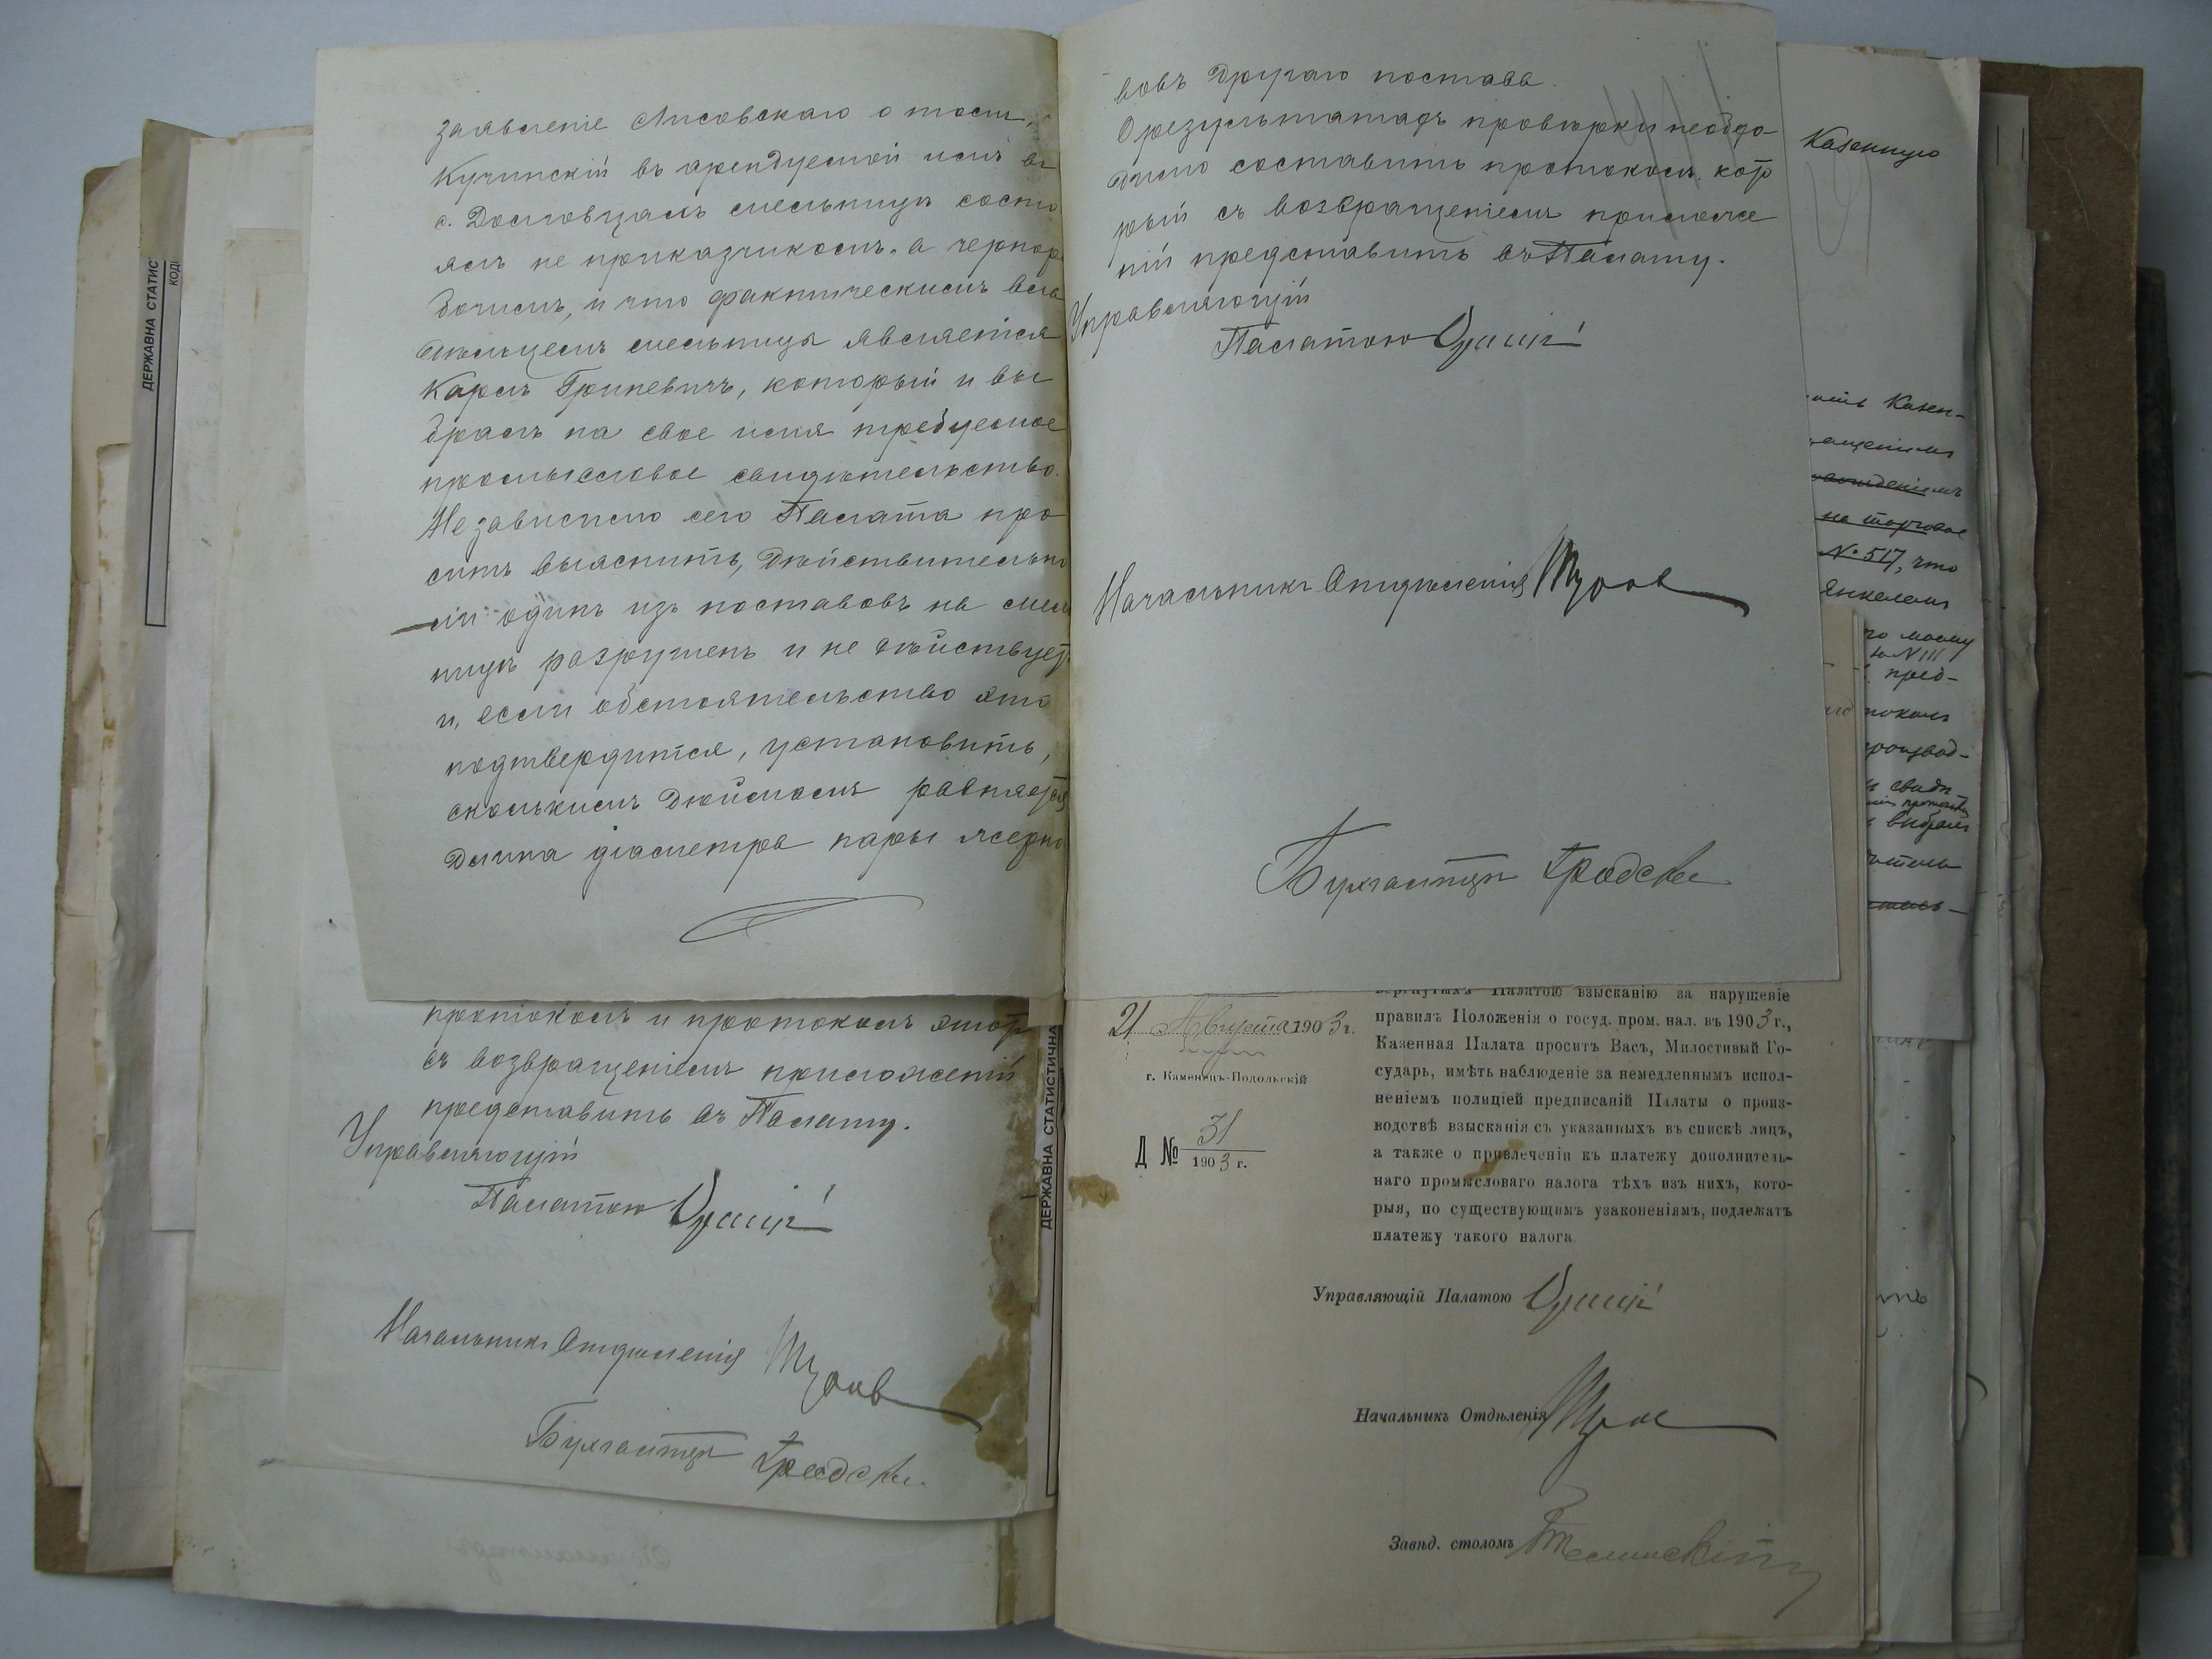 заявленіе Лисовскаго о томъ,
Кучинскій въ арендуемой имъ въ
с. Должовцахъ мельницѣ состо
ялъ не приказчикомъ, а чернора
бочимъ, и что фактическимъ вла
дѣльцемъ мельницы является
Карлъ Гриневичъ, который и вы
бралъ на свое имя требуемое
промысловое свидѣтельство.
Независимо сего Палата про
ситъ выяснить, дѣйствительно
ли одинъ изъ поставовъ на мель
ницѣ разрушенъ и не дѣйствуетъ
и, если обстоятельство это
подтвердится, установить,
сколькимъ дюймамъ равняется
длина діаметра пары жерно
вовъ другаго постава.
О результатахъ провѣрки необхо-
димо составить протоколъ, кото
рый съ возвращеніемъ приложе
ній представить въ Палату.
Управляющій
Палатою
Начальникъ Отдѣленія
Бухгалтеръ
протоколъ и протоколъ этотъ
съ возвращеніемъ приложеній
представить въ Палату.
Управляющій
Палатою
Начальникъ Отдѣленія
Бухгалтеръ
21 Августа 1903 г.
г. Каменецъ-Подольскій
Д № 31
1903 г.
Палатою взысканію за нарушеніе
правилъ Положенія о госуд. пром. нал. въ 1903 г.,
Казенная Палата проситъ Васъ, Милостивый Го-
сударь, имѣть наблюденіе за немедленнымъ испол-
неніемъ полиціей предписаній Палаты о произ-
водствѣ взысканія съ указанныхъ въ спискѣ лицъ,
а также о привлеченіи къ платежу дополнитель-
наго промысловаго налога тѣхъ изъ нихъ, кото-
рыя, по существующимъ узаконеніямъ, подлежатъ
платежу такого налога.
Управляющій Палатою
Начальникъ Отдѣленія
Завѣд. столомъ
Казенную
Казен-
на торговое
№ 517, что
Янкелемъ
по моему
№ III
пред-
произвед-
свидѣ-
выбралъ
ДЕРЖАВНА СТАТИС
КОДІ
ДЕРЖАВНА СТАТИСТИЧНА